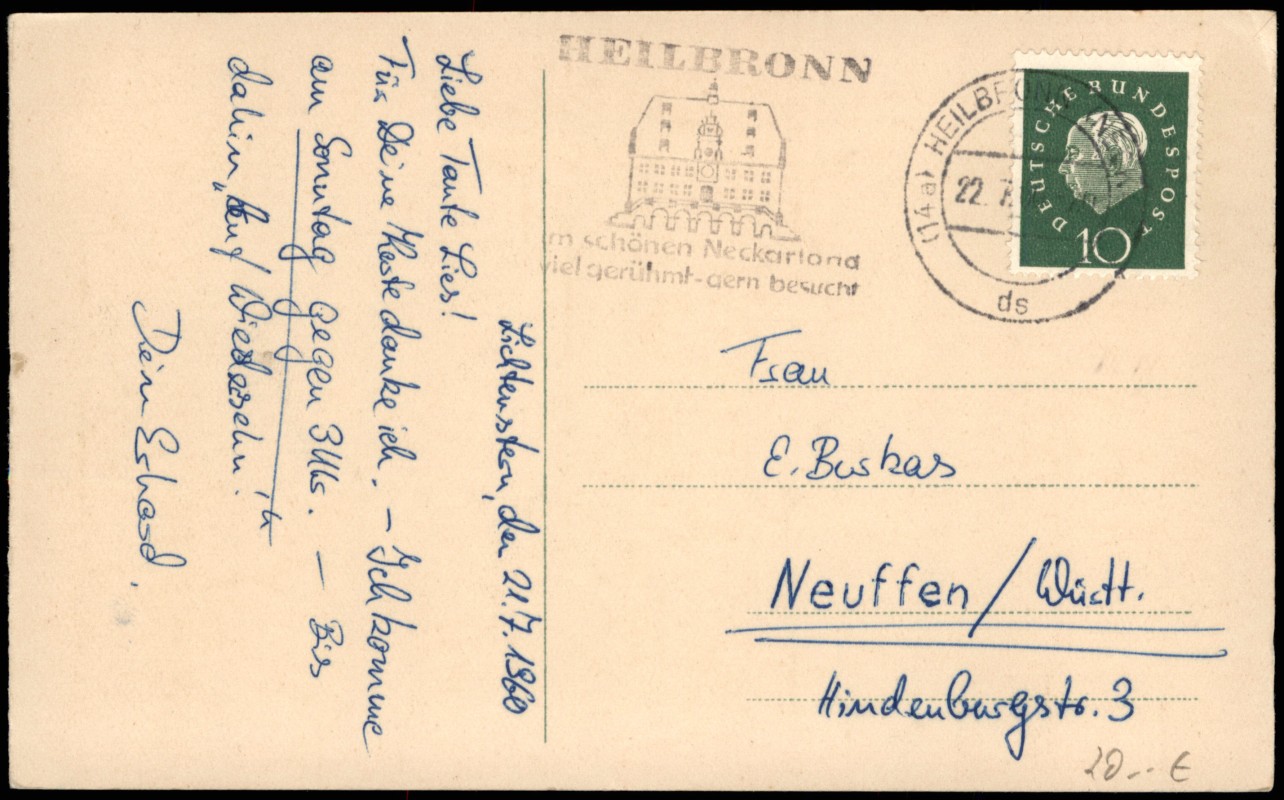 Lichtenstern, den 21.7.1960
Liebe Tante Lies!
Für Deine Karte danke ich. – Ich komme
am Sonntag gegen 3 Uhr. – Bis
dahin „Auf Wiedersehn!“
Dein Erhard.
HEILBRONN
im schönen Neckarland
viel gerühmt-gern besucht
(14a) HEILBRONN
22. 7.
ds
DEUTSCHE BUNDESPOST
10
Frau
E. Burkas
Neuffen / Württ.
Hindenburgstr. 3
20.-- €